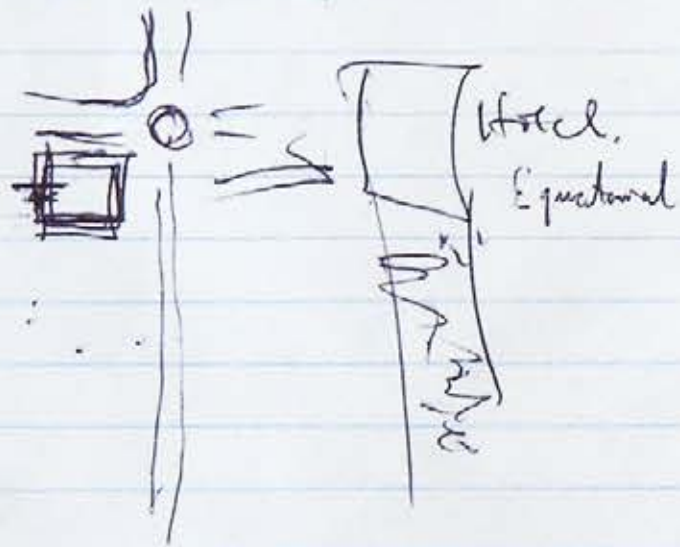 Hotel.
Equatorial